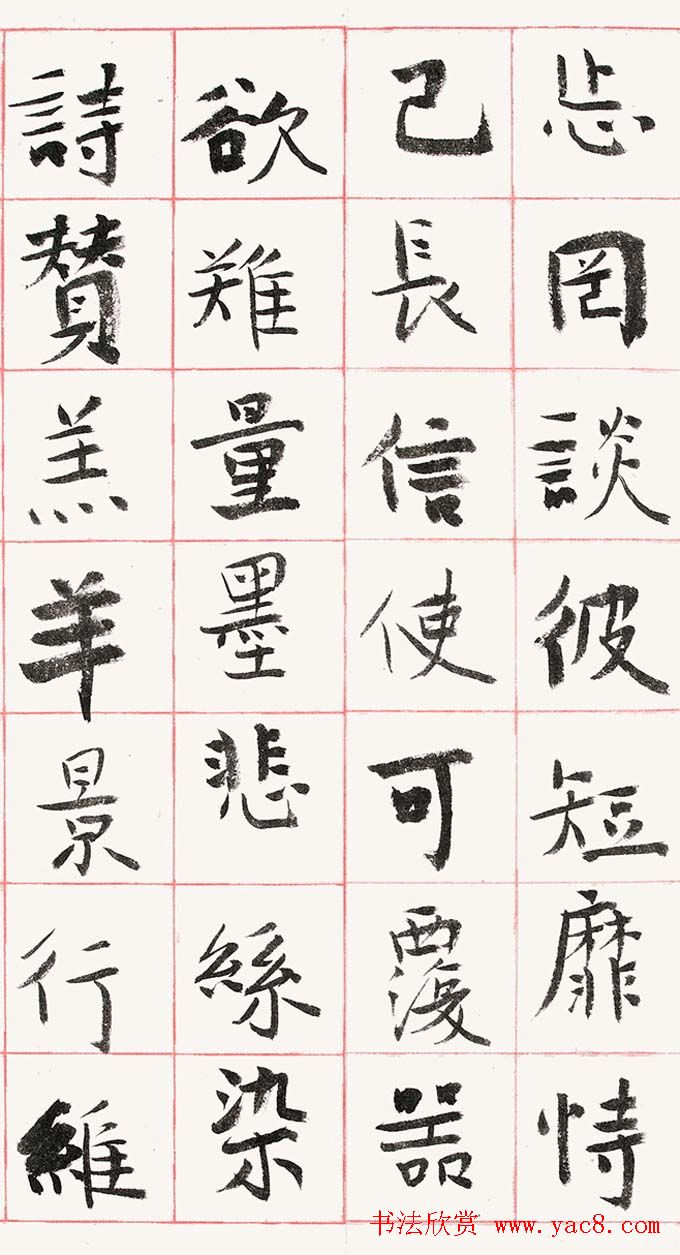 忘罔談彼短靡恃
己長信使可覆器
欲難量墨悲絲染
詩賛羔羊景行維
书法欣赏 www.yac8.com